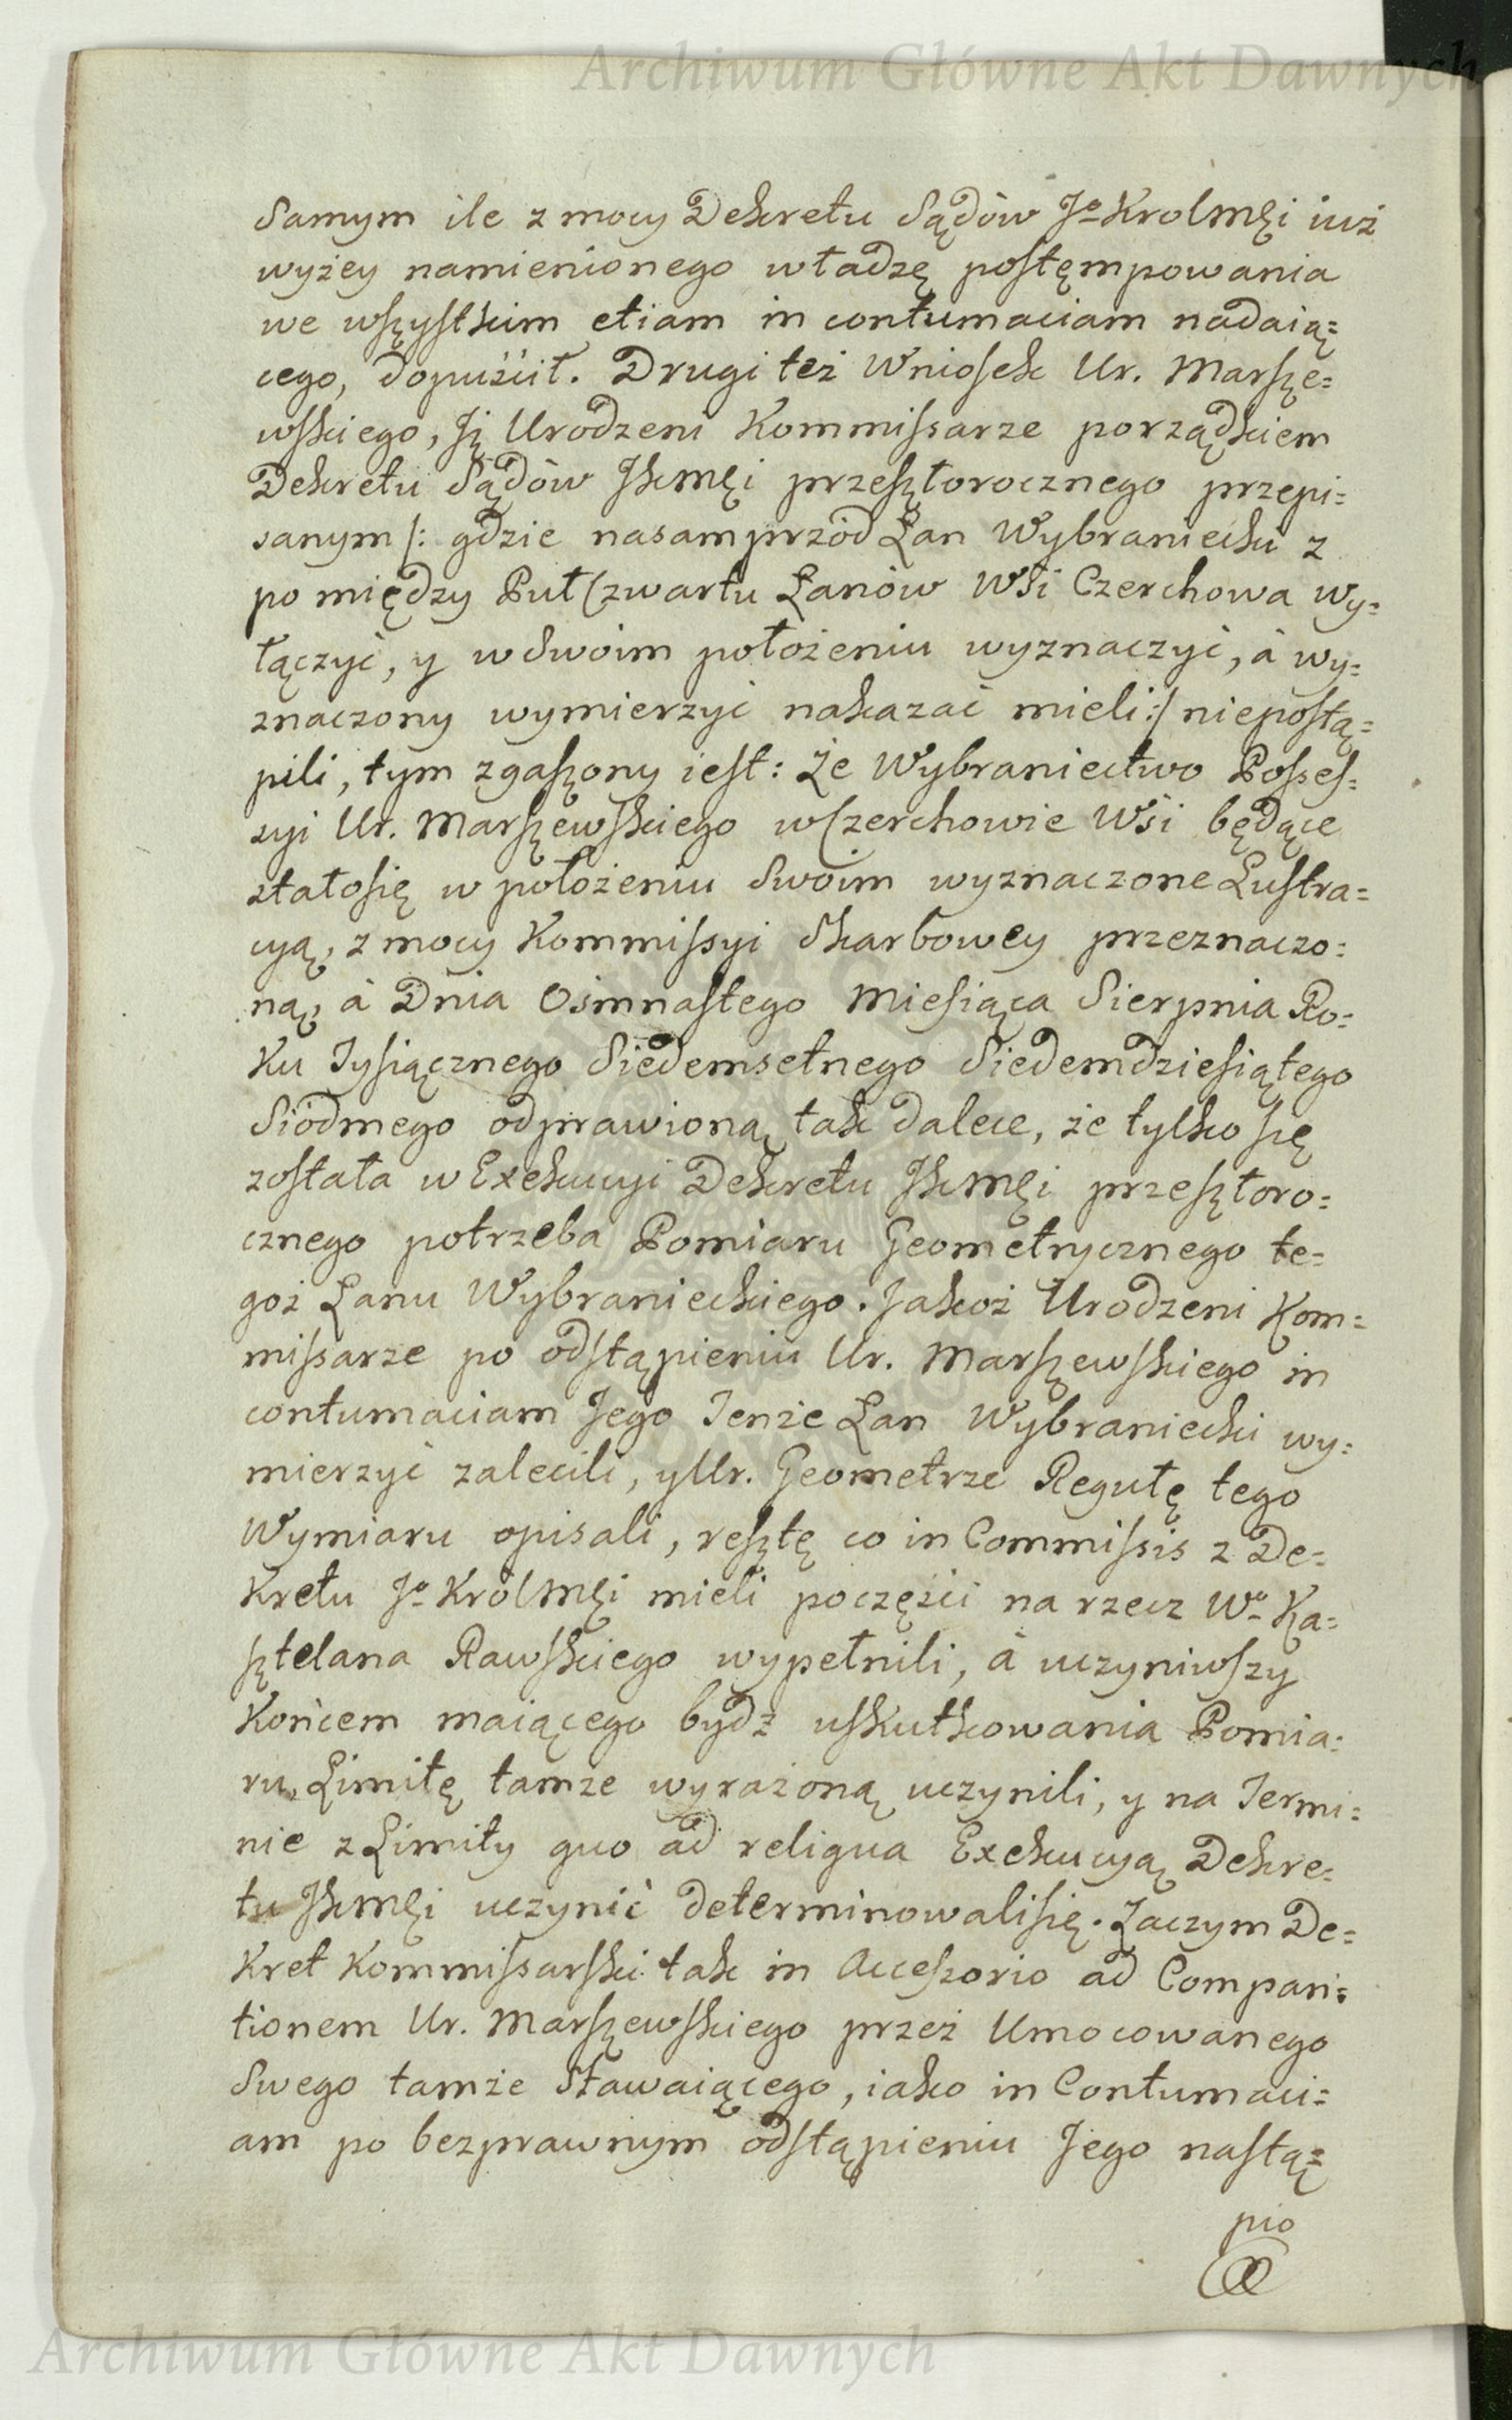 Archiwum Główne Akt Dawnych
Samym ile z mocy Dekretu Sądów Jº KrolMći iuż
wyżey namienionego władzę postęmpowania
we wszystkim etiam in contumaciam nadaią=
cego, dopuścił. Drugi też Wniosek Ur. Marsze=
wskiego, Jż Urodzeni Kommissarze porządkiem
Dekretu Sądów JKMći przeszłorocznego przepi=
sanym /: gdzie nasamprzód Łan Wybraniecki z
pomiędzy Puł Czwartu Łanów Wśi Czerchowa wy=
łączyć, y w Swoim położeniu wyznaczyć, á wy=
znaczony wymierzyć nakazać mieli :/ niepostą=
pili, tym zgaszony iest: Że Wybraniectwo Posses=
syi Ur. Marszewskiego w Czerchowie Wśi będące
stałosię w położeniu Swoim wyznaczone Lustra=
cyą, z mocy Kommissyi Skarbowey przeznaczo=
ną, á Dnia Osimnastego Miesiąca Sierpnia Ro=
ku Tysiącznego Siedemsetnego Siedemdziesiątego
Siódmego odprawioną tak dalece, że tylko się
została w Exekucyi Dekretu JKMći przeszłoro=
cznego potrzeba Pomiaru Geometrycznego te=
goż Łanu Wybranieckiego. Jakoż Urodzeni Kom=
missarze po odstąpieniu Ur. Marszewskiego in
contumaciam Jego Tenże Łan Wybraniecki wy=
mierzyć zalecili, y Ur. Geometrze Regułę tego
Wymiaru opisali, resztę co in Commissis z De=
kretu Jº KrólMći mieli poczęści na rzecz Wº Ka=
sztelana Rawskiego wypełnili, á uczyniwszy
Końcem maiącego bydź uskutkowania Pomia=
ru, Limitę tamże wyrażoną uczynili, y na Termi=
nie z Limity quo ad reliqua Exekucyą Dekre=
tu JKMći uczynić determinowalisię. Zaczym De=
kret Kommissarski tak in Accessorio ad Compari=
tionem Ur. Marszewskiego przez Umocowanego
Swego tamże Stawaiącego, iako in Contumaci=
am po bezprawnym odstąpieniu Jego nastą=
pio
Archiwum Główne Akt Dawnych